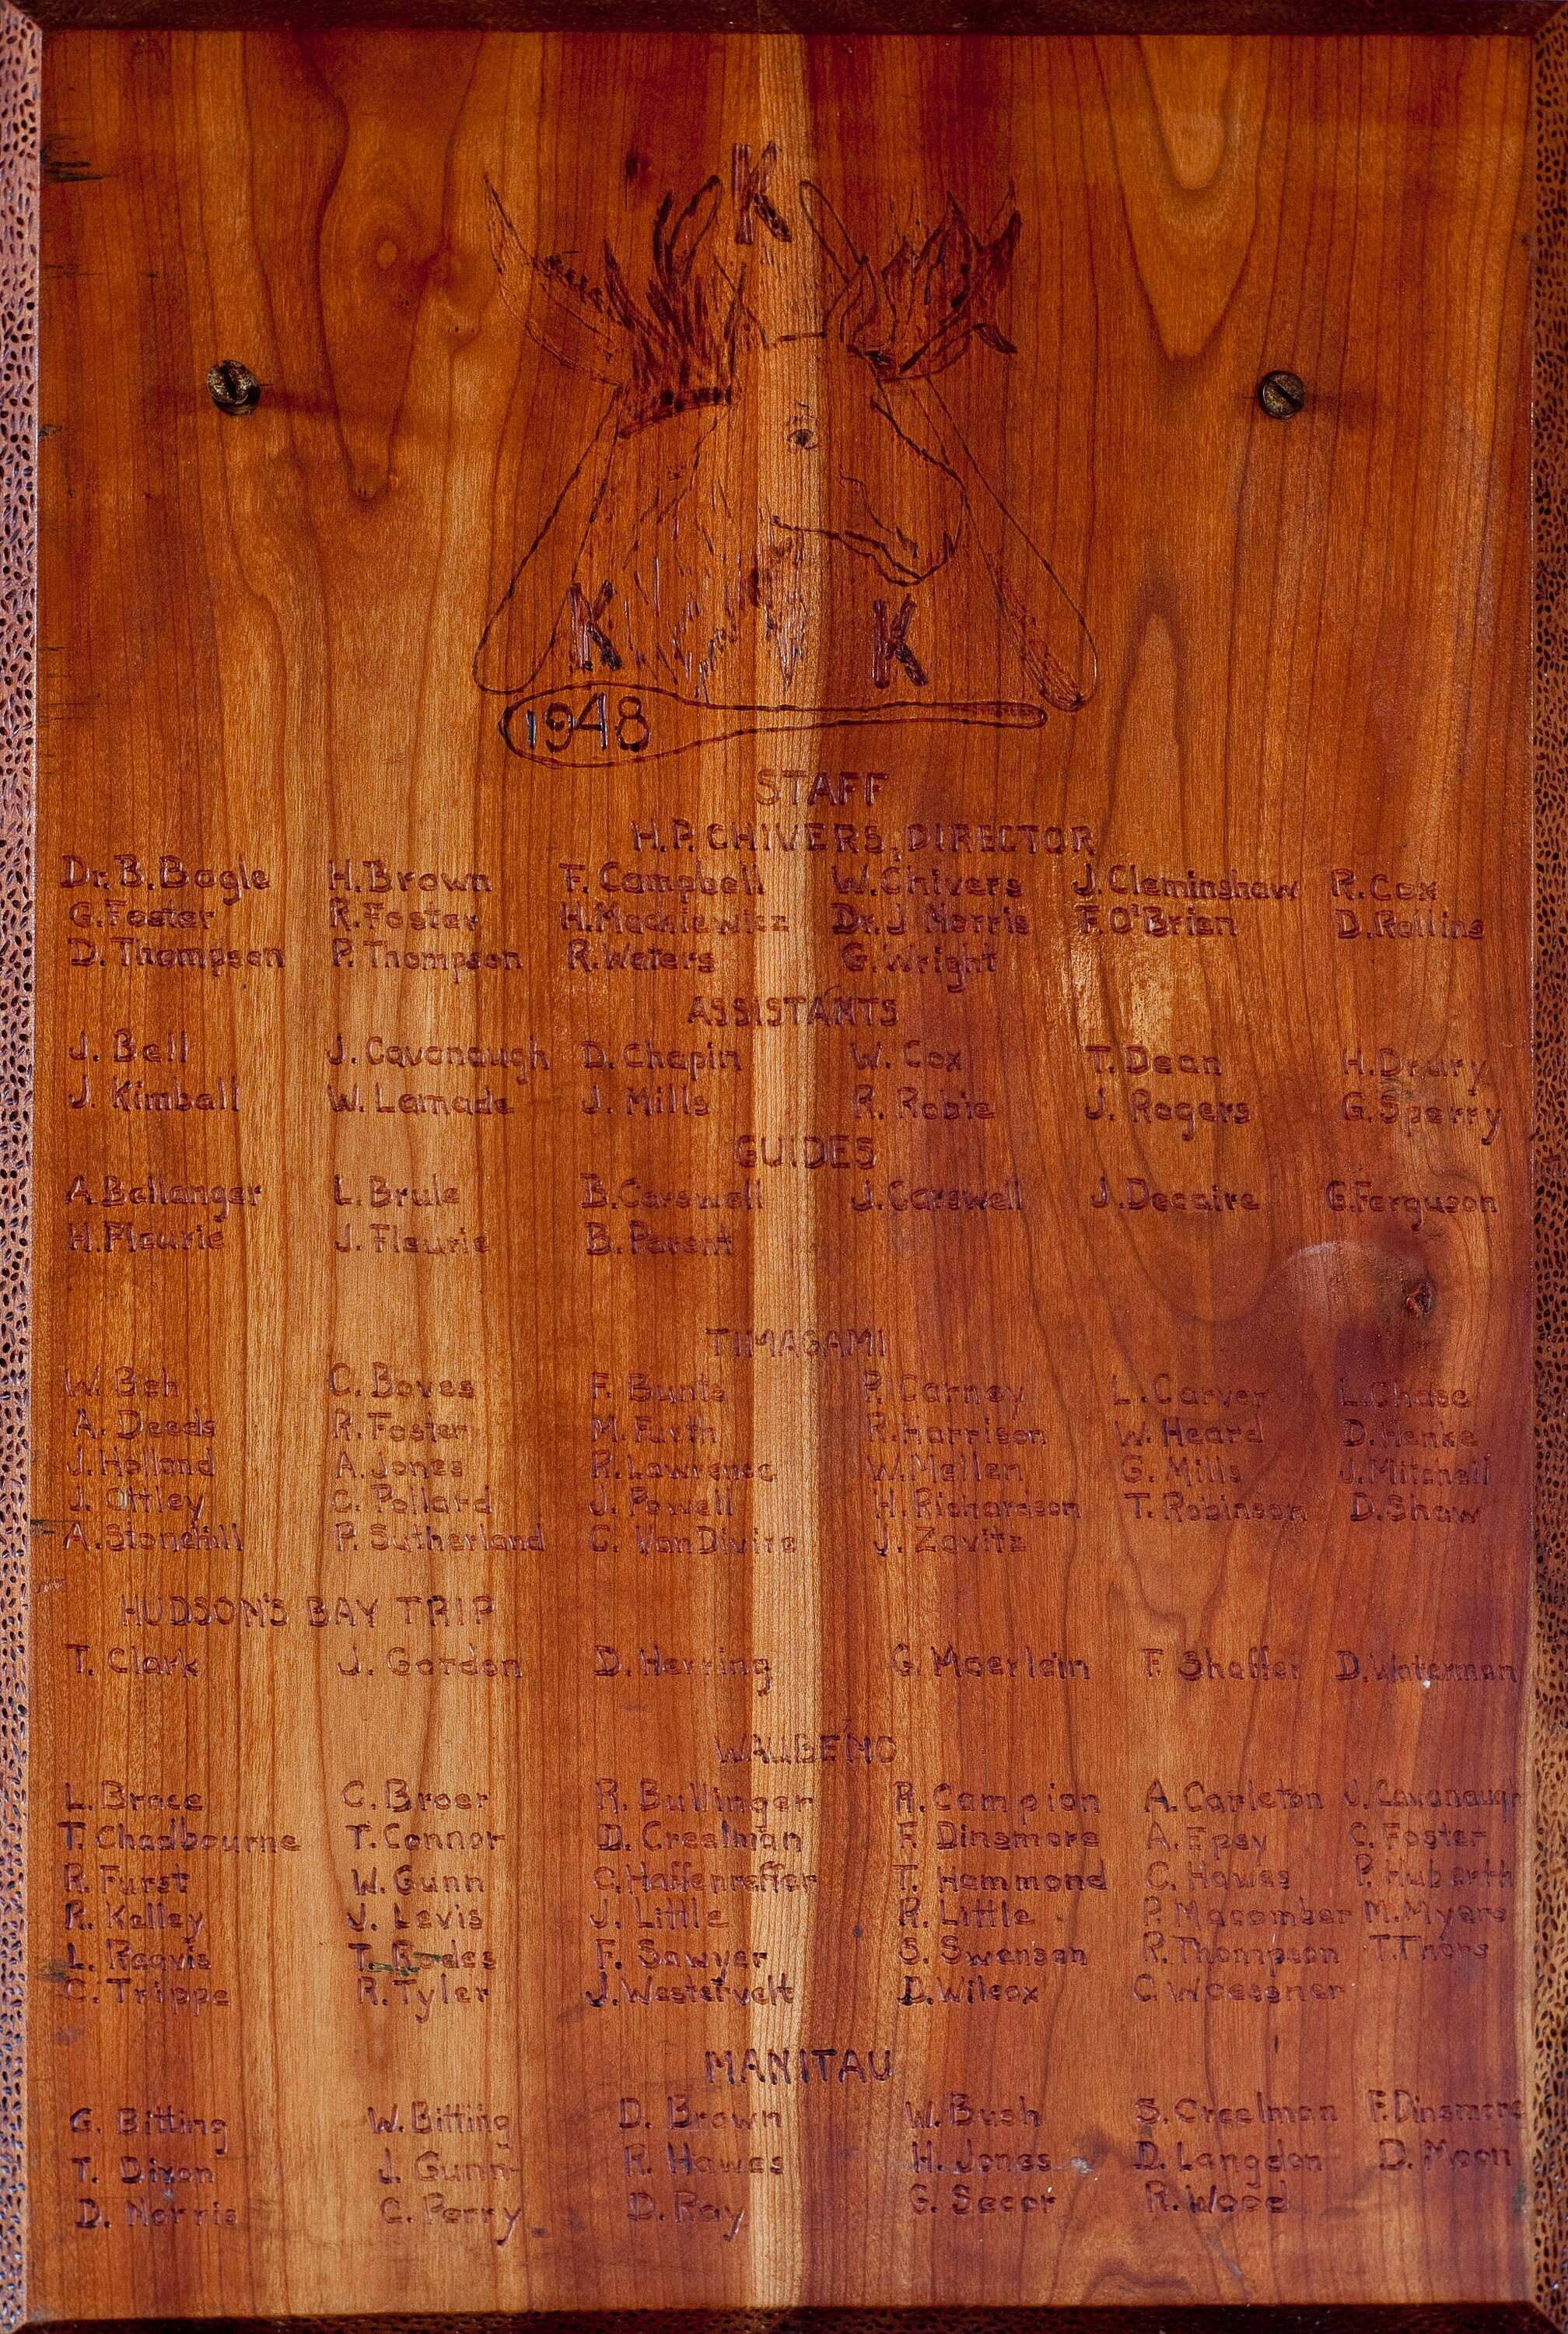 K
K K
1948
STAFF
H.P. CHIVERS, DIRECTOR
Dr. B. Bogle H. Brown F. Campbell W. Chivers J. Cleminshaw R. Cox
G. Foster R. Foster H. Mackiewicz Dr. J Norris F. O'Brien D. Rollins
D. Thompson P. Thompson R. Waters G. Wright
ASSISTANTS
J. Bell J. Cavanaugh D. Chapin W. Cox T. Dean H. Drury
J. Kimball W. Lamade J. Mills R. Robie J. Rogers G. Sperry
GUIDES
A. Bellanger L. Brule B. Carswell J. Carswell J. Decaire G. Ferguson
H. Fleurie J. Fleurie B. Parent
TIMAGAMI
W. Beh C. Boves F. Bunts P. Carney L. Carver L. Chase
A. Deeds R. Foster M. Furth R. Harrison W. Heard D. Henke
J. Holland A. Jones R. Lawrence W. Mellen G. Mills J. Mitchell
J. Ottley C. Pollard J. Powell H. Richardson T. Robinson D. Shaw
A. Stonehill P. Sutherland C. VanDivire J. Zavitz
HUDSON'S BAY TRIP
T. Clark J. Gordon D. Herring G. Moerlein F. Shaffer D. Waterman
WAUBENO
L. Brace C. Broer R. Bullinger R. Campion A. Carleton J. Cavanaugh
T. Chadbourne T. Connor D. Creelman F. Dinsmore A. Epsy C. Foster
R. Furst W. Gunn C. Haffenreffer T. Hammond C. Hawes P. Huberth
R. Kelley J. Levis J. Little R. Little P. Macomber M. Myers
L. Reavis T. Rodes F. Sawyer S. Swensen R. Thompson T. Thors
C. Trippe R. Tyler J. Westervelt D. Wilcox C. Woessner
MANITAU
G. Bitting W. Bitting D. Brown W. Bush S. Creelman F. Dinsmore
T. Dixon J. Gunn R. Hawes H. Jones D. Langdon D. Moon
D. Norris C. Perry D. Ray G. Secor R. Wood